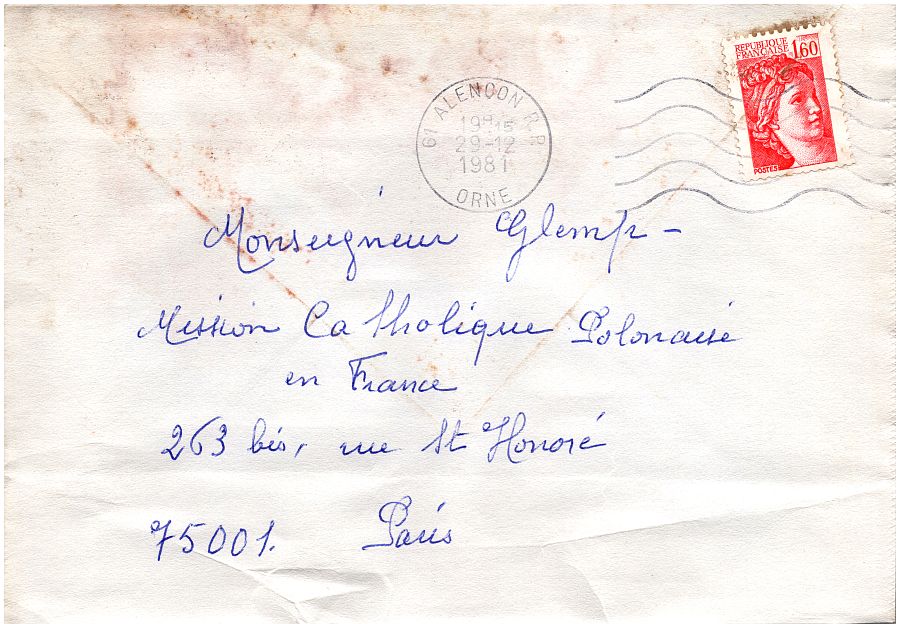 RÉPUBLIQUE
FRANÇAISE 1,60
POSTES
61 ALENÇON R.P.
19H15
29-12
1981
ORNE
Monseigneur Glemp -
Mission Catholique Polonaise
en France
263 bis, rue St Honoré
75001. Paris